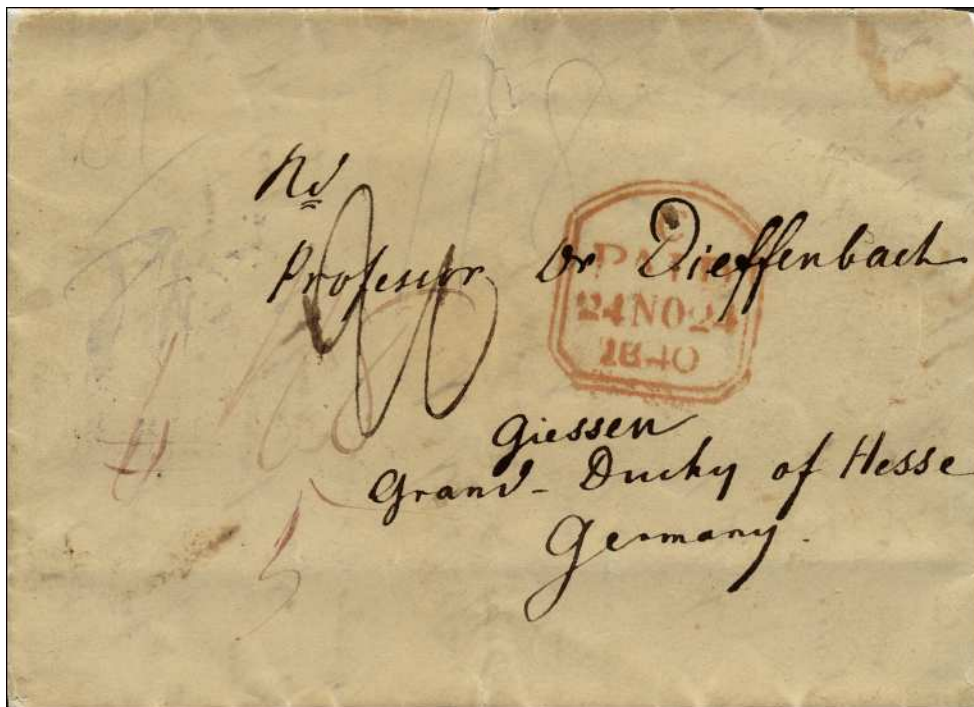 Professor Dr Dieffenbach
PAID
24 NO 24
1840
Giessen
Grand-Duchy of Hesse
Germany.